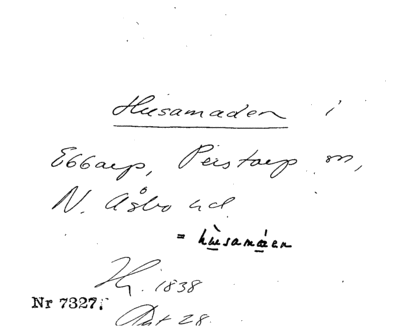 Husamaden i
Ebbarp, Perstorp sn,
N. Åsbo hd.
= hùsamáen
Hj. 1838
Nr 7327.
28.